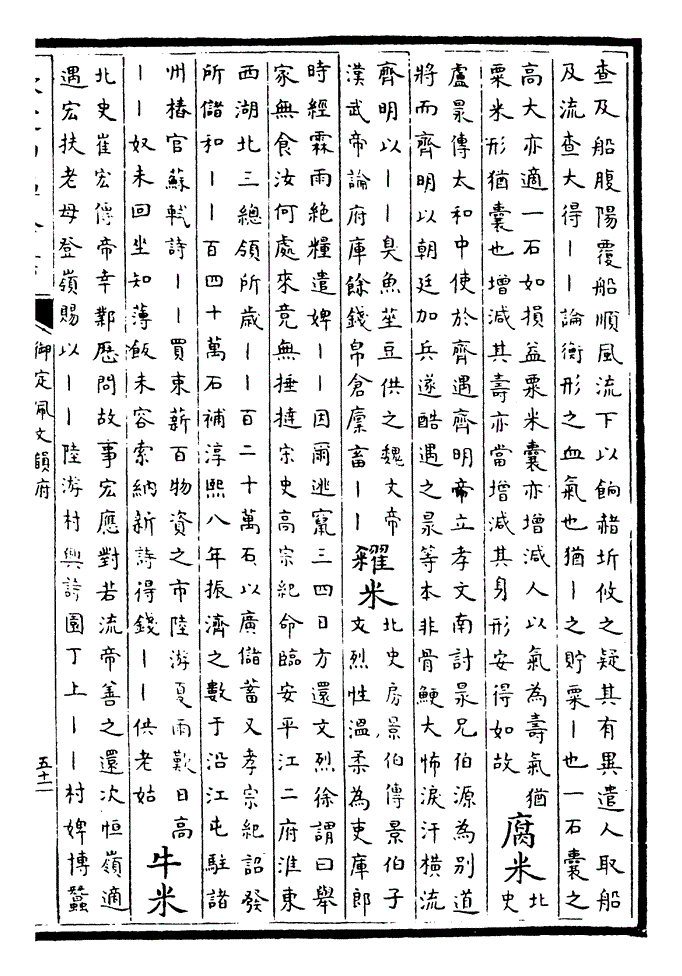 查及船腹陽覆船順風流下以餉赭圻攸之疑其有異遣人取船
及流查大得｜｜論衡形之血氣也猶｜之貯粟｜也一石囊之
高大亦適一石如損益粟米囊亦增減人以氣為壽氣猶
粟米形猶囊也增減其壽亦當增減其身形安得如故
腐米
北
史
盧昶傳太和中使於齊遇齊明帝立孝文南討昶兄伯源為別道
將而齊明以朝廷加兵遂酷遇之昶等本非骨鯁大怖淚汗橫流
齊明以｜｜臭魚莝豆供之魏文帝
漢武帝論府庫餘錢帛倉廩畜｜｜
糴米
北史房景伯傳景伯子
文烈性溫柔為吏庫郎
時經霖雨絕糧遣婢｜｜因爾逃竄三四日方還文烈徐謂曰舉
家無食汝何處來竟無捶撻宋史高宗紀命臨安平江二府淮東
西湖北三總領所歲｜｜百二十萬石以廣儲蓄又孝宗紀詔發
所儲和｜｜百四十萬石補淳熙八年振濟之數于沿江屯駐諸
州樁官蘇軾詩｜｜買束薪百物資之市陸游夏雨歎日高
｜｜奴未回坐知薄飯未容索納新詩得錢｜｜供老姑
牛米
北史崔宏傳帝幸鄴歷問故事宏應對若流帝善之還次恒嶺適
遇宏扶老母登嶺賜以｜｜陸游村興詩園丁上｜｜村婢博蠶
御定佩文韻府
五十二